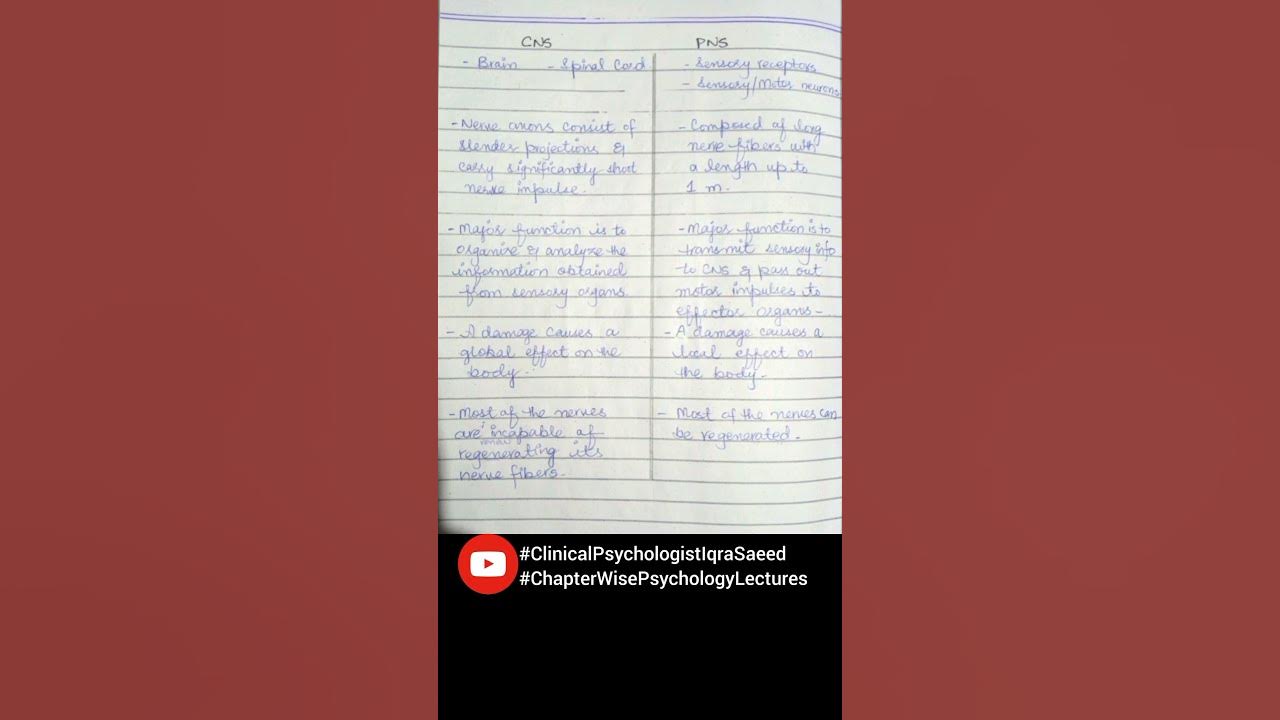 CNS
- Brain - Spinal Cord
- Nerve axons consist of
slender projections &
carry significantly short
nerve impulse.
- Major function is to
organize & analyze the
information obtained
from sensory organs.
- A damage causes a
global effect on the
body.
- Most of the nerves
are incapable of
regenerating its
nerve fibers.
PNS
- Sensory receptors
- Sensory/Motor neurons
- Composed of long
nerve fibers with
a length up to
1 m.
- Major function is to
transmit sensory info
to CNS & pass out
motor impulses to
effector organs -
- A damage causes a
local effect on
the body.
- Most of the nerves can
be regenerated.
#ClinicalPsychologistIqraSaeed
#ChapterWisePsychologyLectures